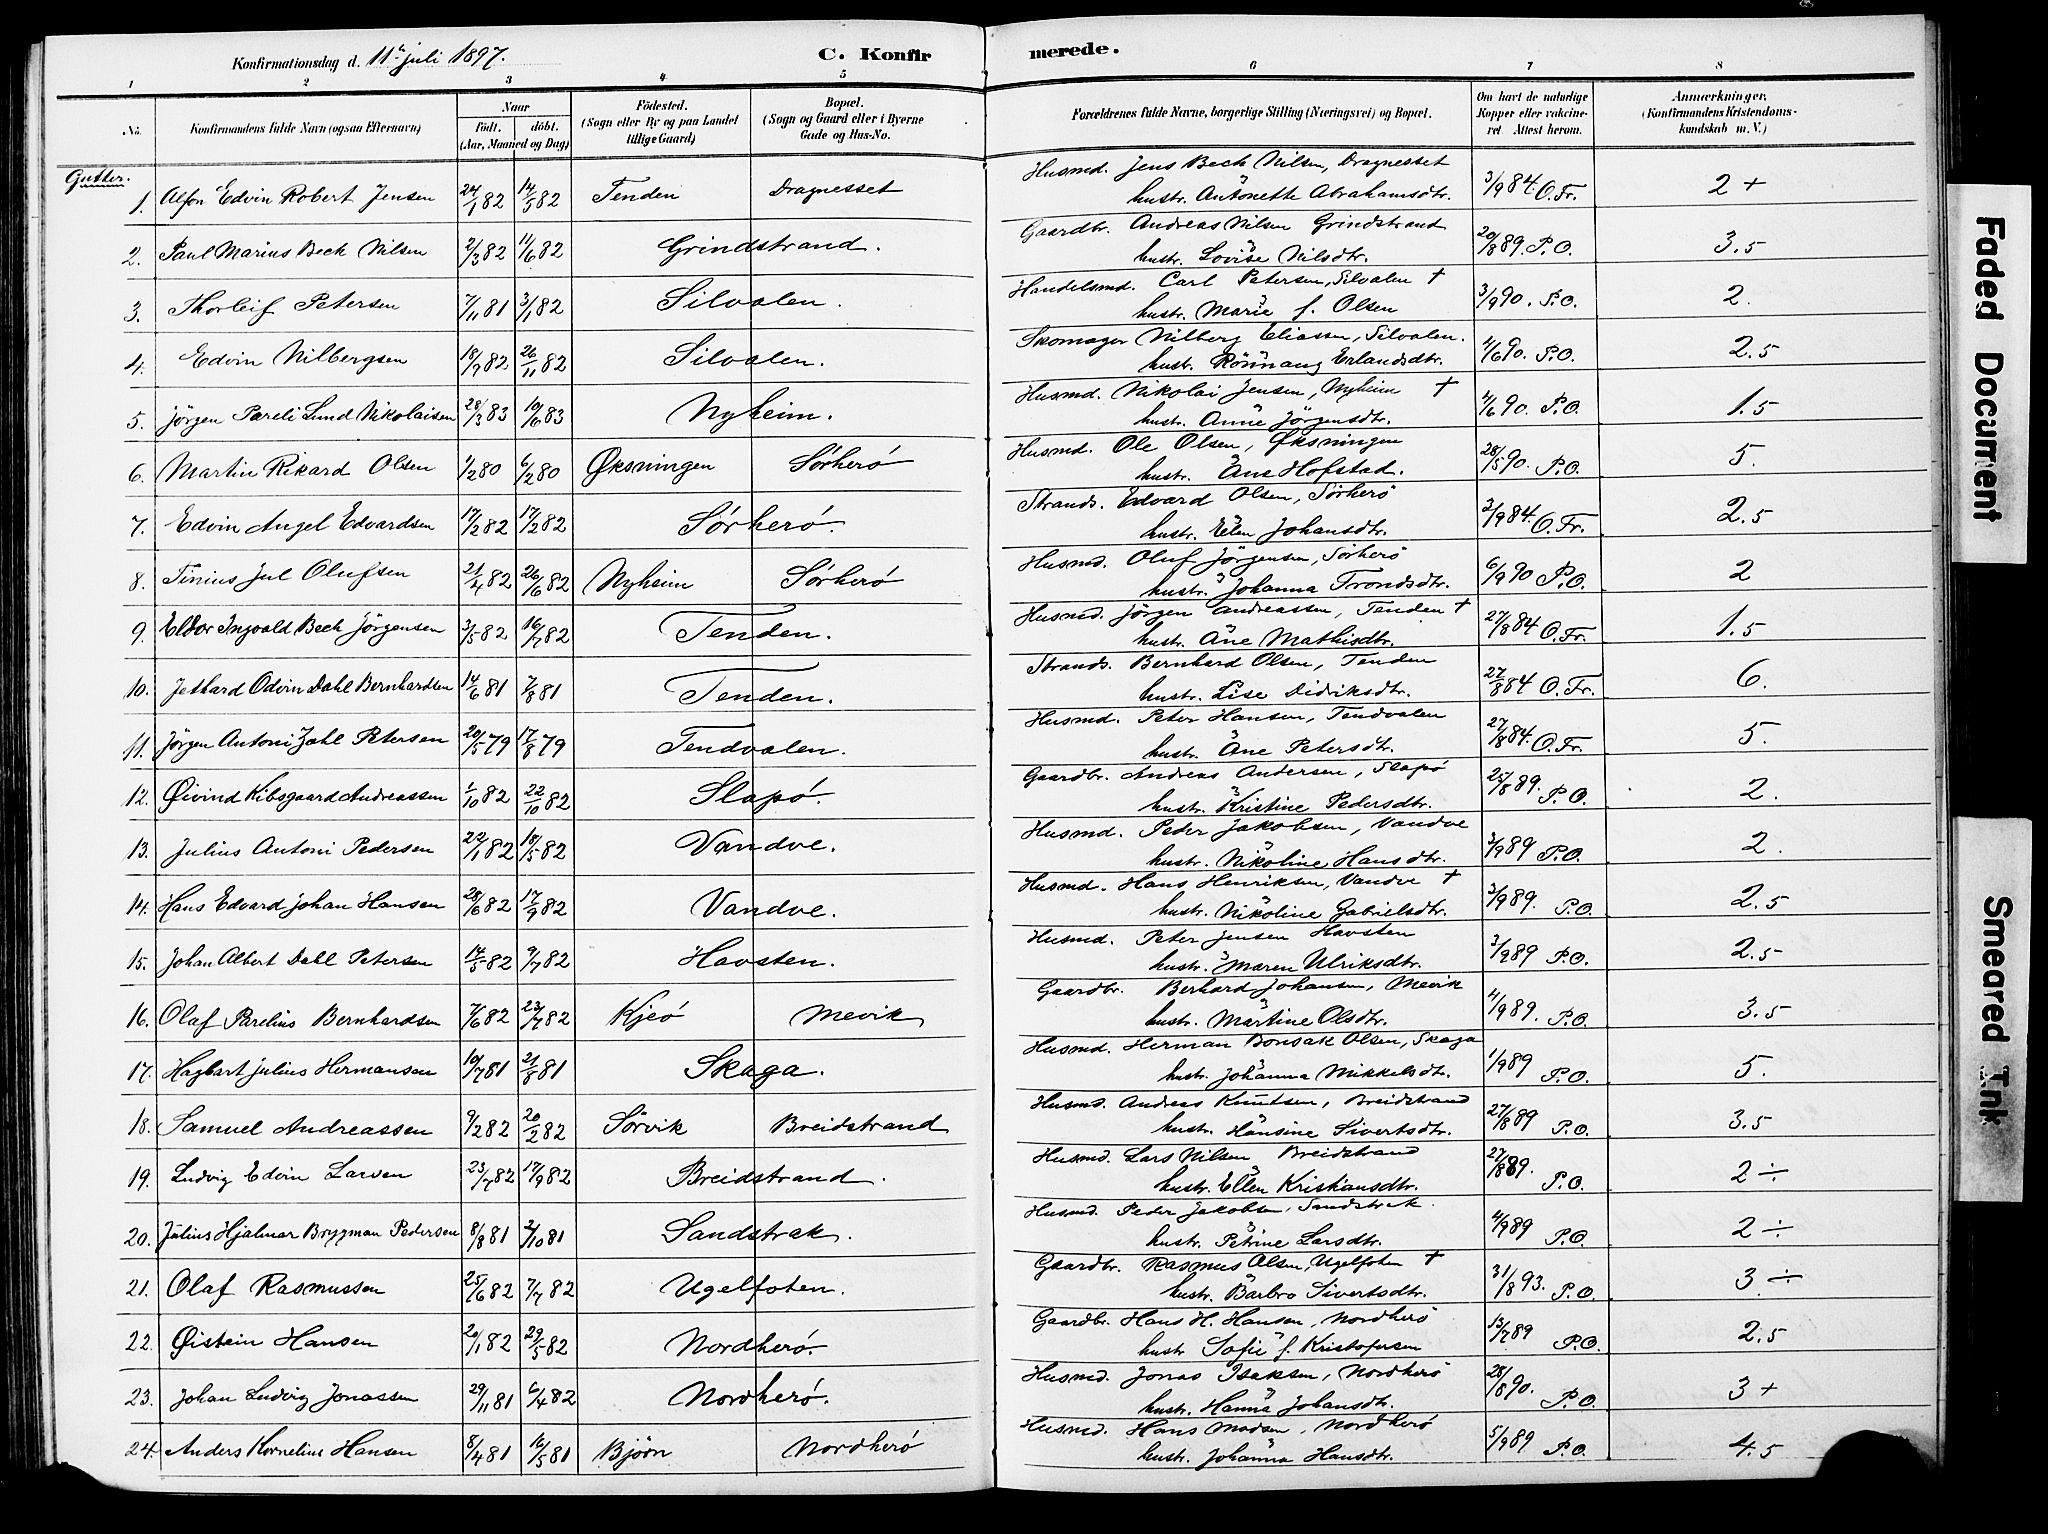 Konfirmationsdag d. 11te juli 1897.
C. Konfirmerede.
1 2 3 4 5 6 7 8
No. Konfirmandens fulde Navn (ogsaa Efternavn) Naar Födt. döbt. (Aar, Maaned og Dag) Födested. (Sogn eller By og paa Landet tillige Gaard) Bopæl. (Sogn og Gaard eller i Byerne Gade og Hus-No. Forældrenes fulde Navne, borgerlige Stilling (Næringsvei) og Bopæl. Om havt de naturlige Kopper eller vakcineret Attest herom. Anmærkninger. (Konfirmandens Kristendomskundskab m. V.)
Gutter.
1. Alfon Edvin Robert Jensen 24/1 82 14/5 82 Tenden Dragnesset Husmd. Jens Beck Nilsen, Dragnesset 3/9 84. O.Fr. 2 +
hustr. Antonette Abrahamsdtr.
2. Paul Marius Beck Nilsen 2/3 82 11/6 82 Grindstrand. Gaardbr. Andreas Nilsen Grindstrand 20/8 89. P.O. 3.5
hustr. Lovise Nilsdtr.
3. Thorleif Petersen 7/11 81 3/1 82 Silvalen. Handelsmd. Carl Petersen, Silvalen † 3/9 90. P.O. 2.
hustr. Marie f. Olsen
4. Edvin Nilbergsen 18/9 82 26/11 82 Silvalen. Skomager Nilberg Eliassen, Silvalen. 4/6 90. P.O. 2.5
hustr. Rönnaug Erlandsdtr.
5. Jörgen Pareli Lund Nikolaisen 28/3 83 10/6 83 Nyheim. Husmd. Nikolai Jensen, Nyheim † 4/6 90. P.O. 1.5
hustr. Anne Jörgensdtr.
6. Martin Rikard Olsen 1/2 80 6/2 80 Øksningen Sörherö Husmd. Ole Olsen, Øksningen 28/5 90. P.O. 5.
hustr. Ane Hofstad.
7. Edvin Angel Edvardsen 17/2 82 17/2 82 Sörherö. Strands. Edvard Olsen, Sörherö 3/9 84. O.Fr. 2.5
hustr. Elen Johansdtr.
8. Tinius Jul Olufsen 21/4 82 26/6 82 Nyheim Sörherö Husmd. Oluf Jörgensen, Sörherö 6/9 90 P.O. 2
hustr. Johanna Trondsdtr.
9. Eldor Ingvald Beck Jörgensen 3/5 82 16/7 82 Tenden. Husmd. Jörgen Andreassen, Tenden † 27/8 84 O.Fr. 1.5
hustr. Ane Mathisdtr.
10. Jethard Odvin Dahl Bernhardsen 14/6 81 7/8 81 Tenden. Strands. Bernhard Olsen, Tenden 27/8 84 O.Fr. 6.
hustr. Lise Didriksdtr.
11. Jörgen Antoni Zahl Petersen 20/5 79 17/8 79 Tendvalen. Husmd. Peter Hansen, Tendvalen 27/8 84. O.Fr. 5.
hustr. Ane Petersdtr.
12. Øivind Kibsgaard Andreassen 1/10 82 22/10 82 Slapö. Gaardbr. Andreas Andersen, Slapö 25/8 89. P.O. 2.
hustr. Kristine Pedersdtr.
13. Julius Antoni Pedersen 22/1 82 18/5 82 Vandve. Husmd. Peder Jakobsen, Vandve 3/9 89 P.O. 2.
hustr. Nikoline Hansdtr.
14. Hans Edvard Johan Hansen 28/6 82 17/9 82 Vandve. Husmd. Hans Henriksen, Vandve † 3/9 89. P.O. 2.5
hustr. Nikoline Gabrielsdtr.
15. Johan Albert Dahl Petersen 14/5 82 9/7 82 Havsten. Husmd. Peter Jensen Havsten 3/9 89 P.O. 2.5
hustr. Maren Ulriksdtr.
16. Olaf Parelius Bernhardsen 7/6 82 23/7 82 Kjeö Mevik Gaardbr. Berhard Johansen, Mevik 4/9 89. P.O. 3.5
hustr. Martine Olsdtr.
17. Hagbart Julius Hermansen 10/7 81 21/8 81 Skaga. Husmd. Herman Bonsak Olsen, Skaga 1/9 89 P.O. 5.
hustr. Johanna Mikkelsdtr.
18. Samuel Andreassen 9/2 82 20/2 82 Sörvik Breidstrand Husmd. Andreas Knutsen, Breidstrand 27/8 89 P.O. 3.5
hustr. Hansine Sivertsdtr.
19. Ludvig Edvin Larsen 23/7 82 17/9 82 Breidstrand. Husmd. Lars Nilsen Breidstrand 27/8 89. P.O. 2 ÷
hustr. Ellen Kristiansdtr.
20. Julius Hjalmar Brygman Pedersen 8/8 81 2/10 81 Sandstrak. Husmd. Peder Jakobsen, Sandstrak. 4/9 89 P.O. 2 ÷
hustr. Petrine Larsdtr.
21. Olaf Rasmussen 25/6 82 7/7 82 Ugelfoten. Gaardbr. Rasmus Olsen, Ugelfoten † 31/8 93. P.O. 3 ÷
hustr. Barbro Sivertsdtr.
22. Øistein Hansen 20/1 82 29/5 82 Nordherö. Gaardbr. Hans H. Hansen, Nordherö 13/7 89 P.O. 2.5
hustr Sofie f. Kristofersen
23. Johan Ludvig Jonassen 29/11 81 6/4 82 Nordherö. Husmd. Jonas Isaksen, Nordherö 28/8 90. P.O. 3 +
hustr. Hanna Johansdtr.
24. Anders Kornelius Hansen 8/4 81 16/5 81 Björn Nordherö Husmd. Hans Madsen, Nordherö 5/9 89 P.O. 4.5
hustr. Johanna Hansdtr.
Faded Document
Smeared Ink